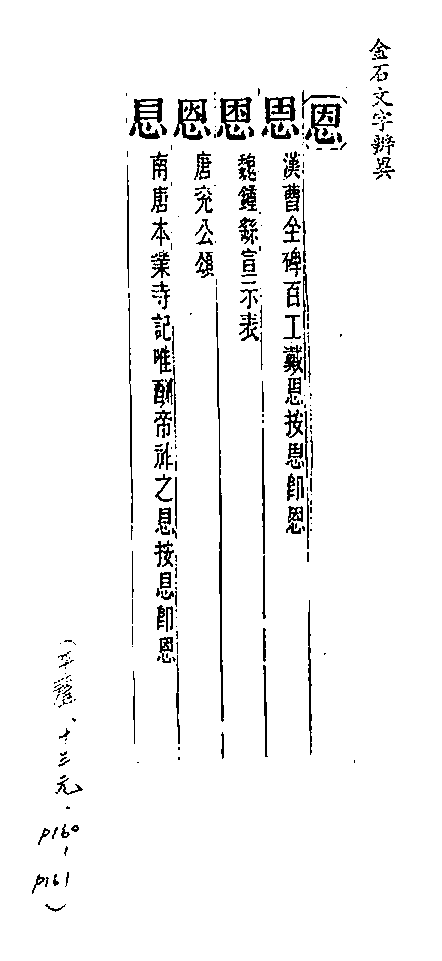 金石文字辨異
恩
𢛳漢曹全碑百工戴𢛳按𢛳即恩
㤙魏鍾繇宣示表
恩唐兖公頌
息南唐本業寺記唯酬帝祚之息按息即恩
(平聲、十三元・p160-p161)